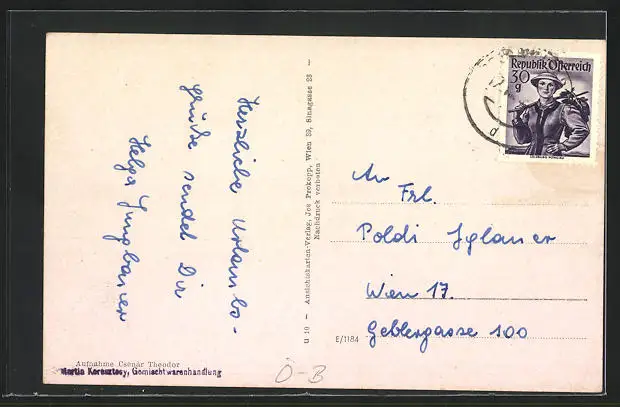 Herzliche Urlaubs-
grüße sendet Dir
Helga Jungbauer
Aufnahme Csenár Theodor
Martin Koresztesy, Gemischtwarenhandlung
U 10 – Ansichtskarten-Verlag, Jos Prokopp, Wien 89, Sinagasse 25 –
Nachdruck verboten
Republik Österreich
30
g
An Frl.
Poldi Iglauer
Wien 17.
E/1184
Geblergasse 100
Ö-B